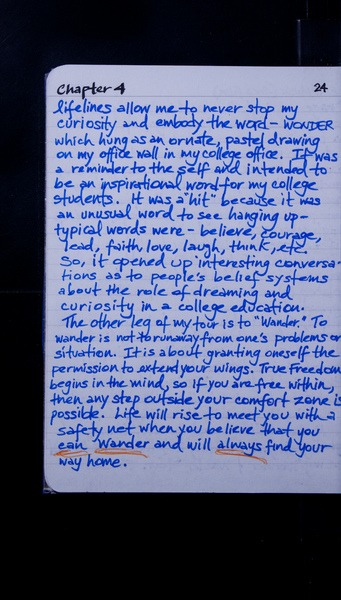 Chapter 4 24
lifelines allow me to never stop my
curiosity and embody the word - WONDER
which hung as an ornate, pastel drawing
on my office wall in my college office. It was
a reminder to the self and intended to
be an inspirational word for my college
students. It was a "hit" because it was
an unusual word to see hanging up -
typical words were - believe, courage,
lead, faith, love, laugh, think, etc.
So, it opened up interesting conversa-
tions as to people's belief systems
about the role of dreaming and
curiosity in a college education.
The other leg of my tour is to "Wander." To
wander is not to runaway from one's problems or
situation. It is about granting oneself the
permission to extend your wings. True Freedom
begins in the mind, so if you are free within,
then any step outside your comfort zone is
possible. Life will rise to meet you with a
safety net when you believe that you
can Wander and will always find your
way home.